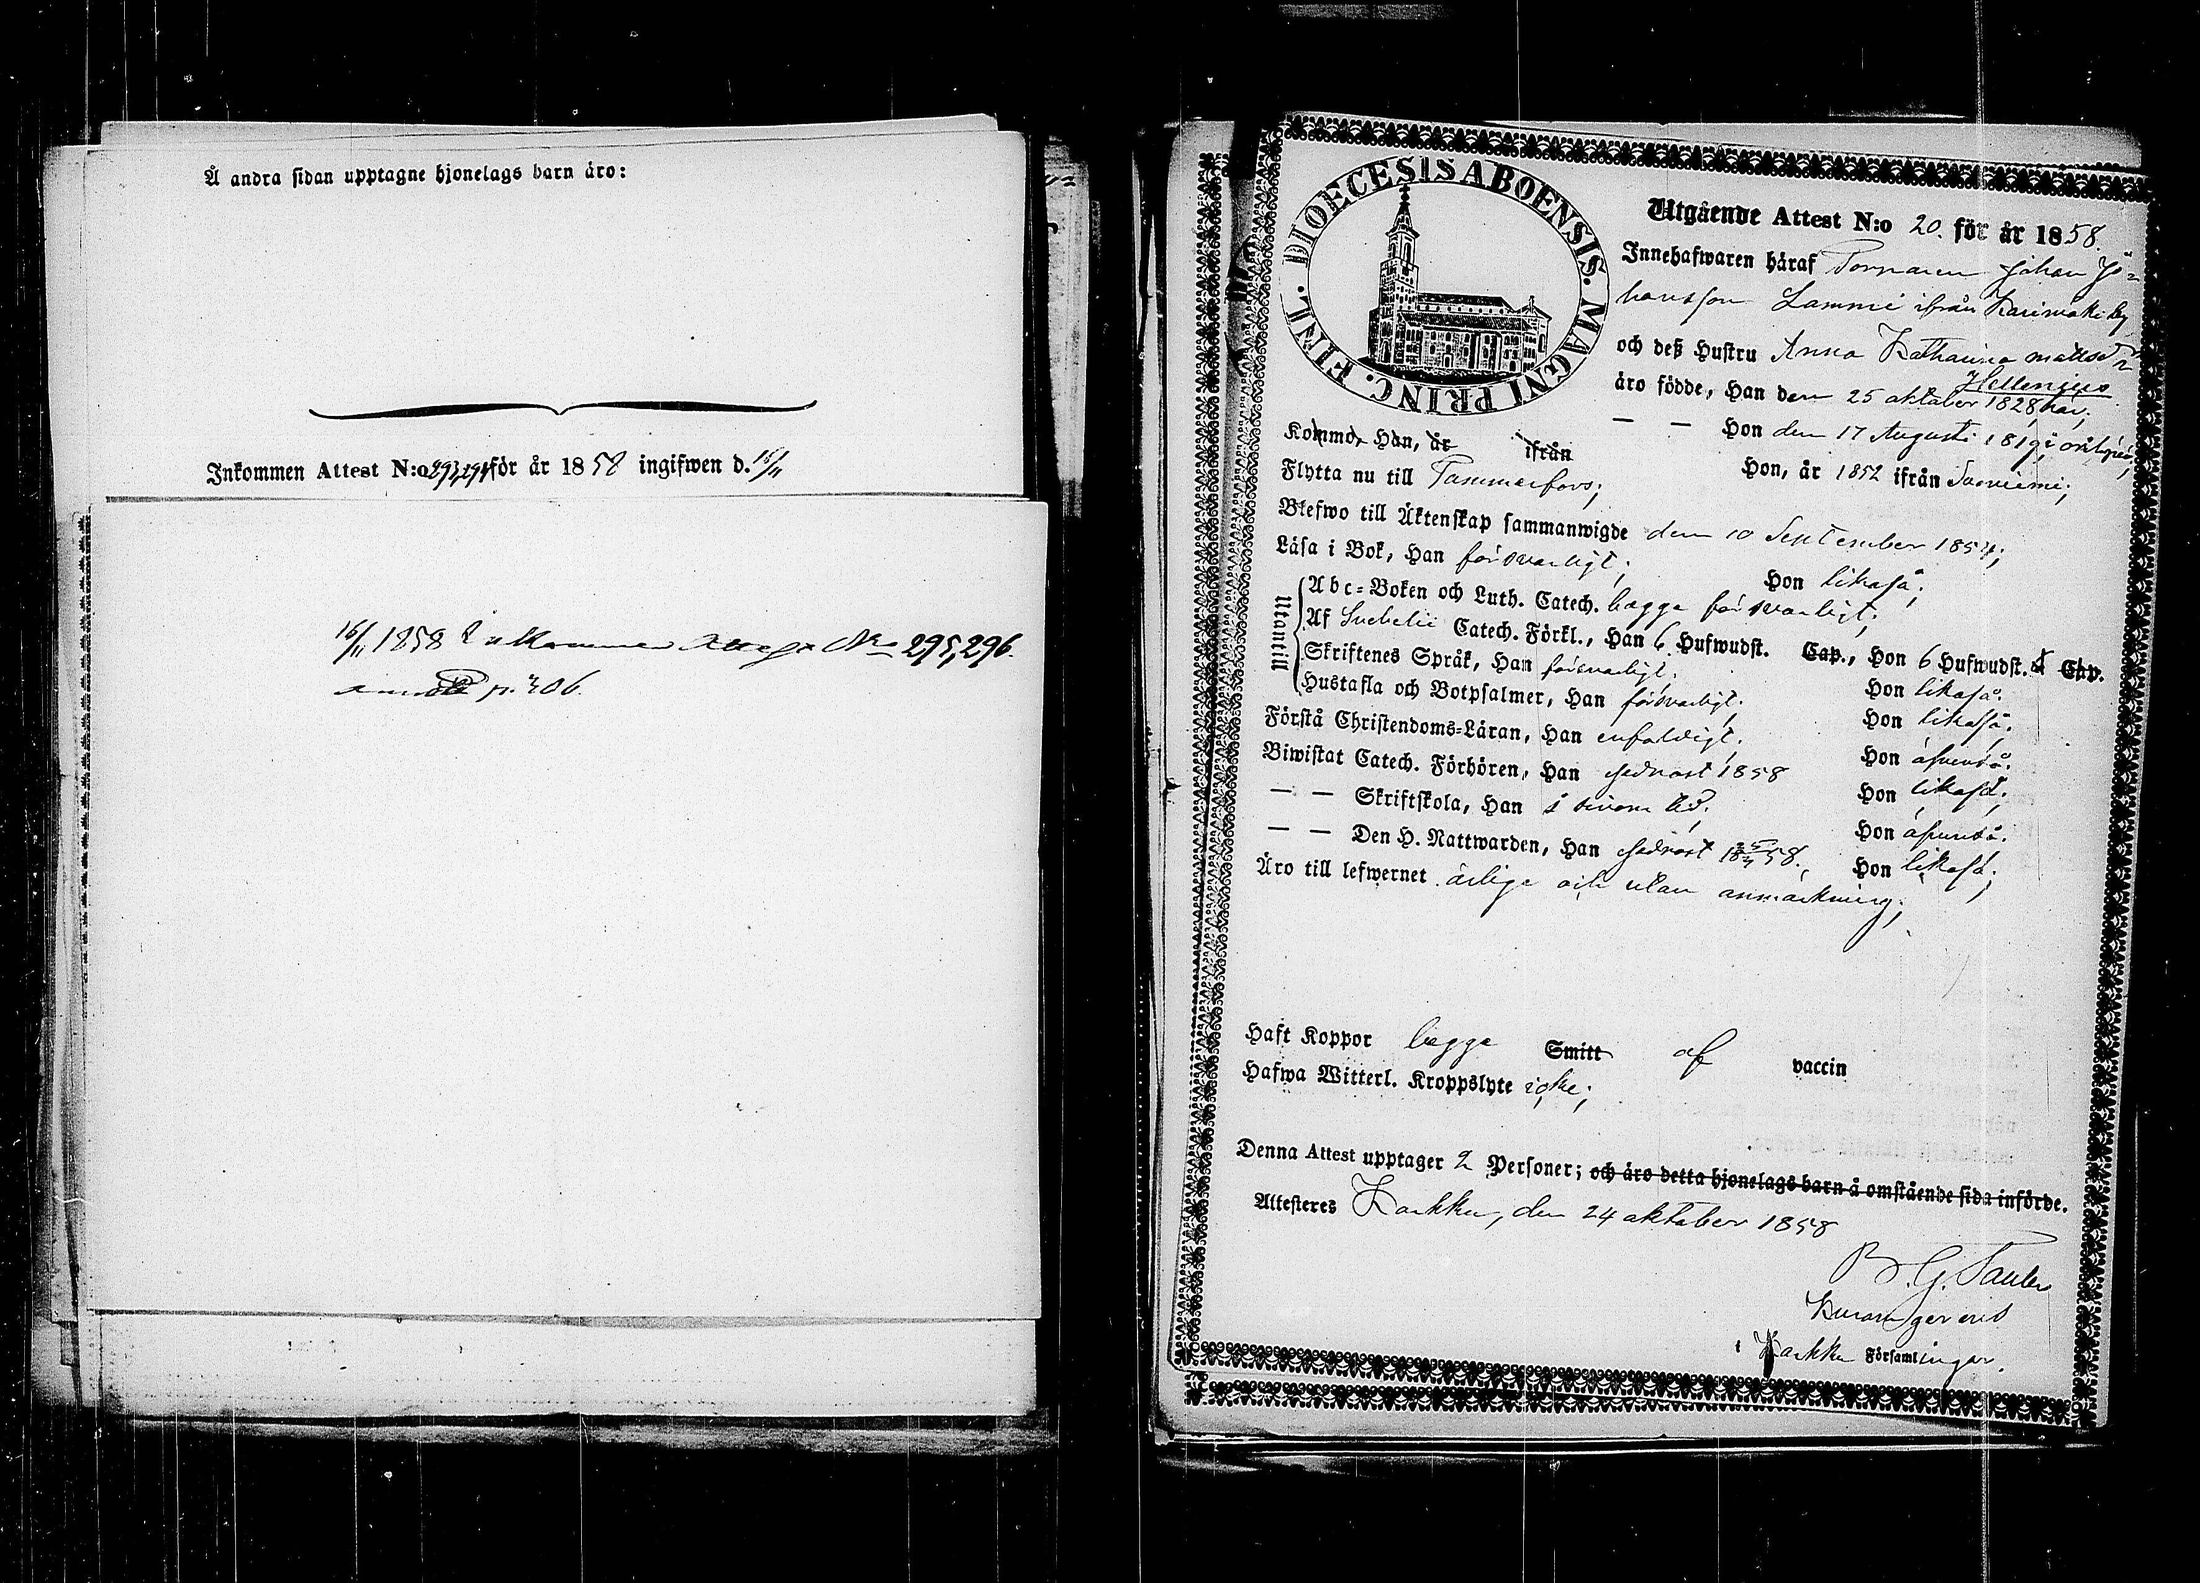 Å andra sidan upptagne hjonelags barn äro:
Inkommen Attest N:o 293,294 för år 1858 ingifwen d. 16/11
16/11 1858 Inkommen Attest No 295,296.
p. 306.
DIOECESIS ABOENSIS. MAGNI PRINC. FINL.
Utgående Attest N:o 20. för år 1858.
Innehafwaren häraf Tornaren Johan Jo=
hansson Lammi ifrån Karimäki by
och deß Hustru Anna Katharina Matsdr
Hellenius
äro födde, Han den 25 oktober 1828, här;
— — Hon den 17 Augusti 1819, i
Komma, Han, år ifrån
Hon, år 1852 ifrån Suoniemi;
Flytta nu till Tammerfors;
Blefwo till Äktenskap sammanwigde den 10 September 1854;
Läsa i Bok, Han försvarligt; Hon likaså;
Utantill
Abc-Boken och Luth. Catech. begge försvarligt;
Af Svebelii Catech. Förkl., Han 6 Hufwudst. Cap., Hon 6 Hufwudst. Cap.
Skriftenes Språk, Han försvarligt; Hon likaså;
Hustafla och Botpsalmer, Han försvarligt; Hon likaså;
Förstå Christendoms-Läran, Han enfaldigt; Hon äfvenså;
Biwistat Catech. Förhören, Han sednast 1858 Hon likaså;
— — Skriftskola, Han i sinom tid; Hon äfvenså;
— — Den H. Nattwarden, Han sednast 18 25/4 58. Hon likaså;
Äro till lefwernet ärliga och utan anmärkning;
Haft Koppor begge Smitt af vaccin
Hafwa Witterl. Kroppslyte icke;
Denna Attest upptager 2 Personer; och äro detta hjonelags barn å omstående sida införde.
Attesteres Karkku, den 24 oktober 1858
B. G. Pauler
i Karkku Församlingar.